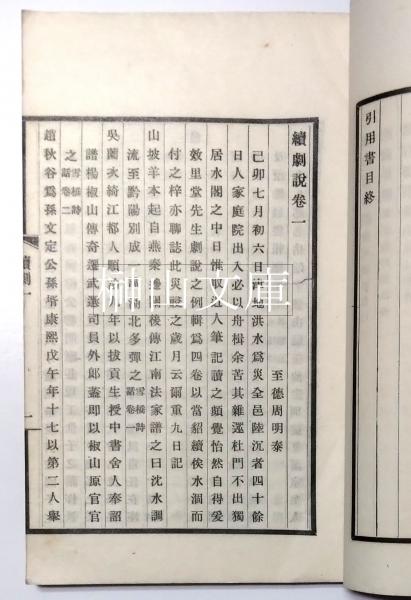 引用書目終
續劇說卷一
至德周明泰
己卯七月初六日津地洪水爲災全邑陸沉者四十餘
日人家庭院出入必以舟楫余苦其雜遝杜門不出獨
居水閣之中日惟取近人筆記讀之頗覺怡然自得爰
效里堂先生劇說之例輯爲四卷以當貂續俟水涸而
付之梓亦聊誌此災難之歲月云爾重九日記
山坡羊本起自燕秦邊關後傳江南法家譜之曰沈水調
流至黔陽別成一調湖北多彈之雪橋詩話卷一
吳薗次綺江都人順治年以拔貢生授中書舍人奉詔
譜楊椒山傳奇遷武選司員外郎蓋即以椒山原官官
之雪橋詩話卷二
趙秋谷爲孫文定公孫壻康熙戊午年十七以第二人舉
續劇
一
榊山文庫